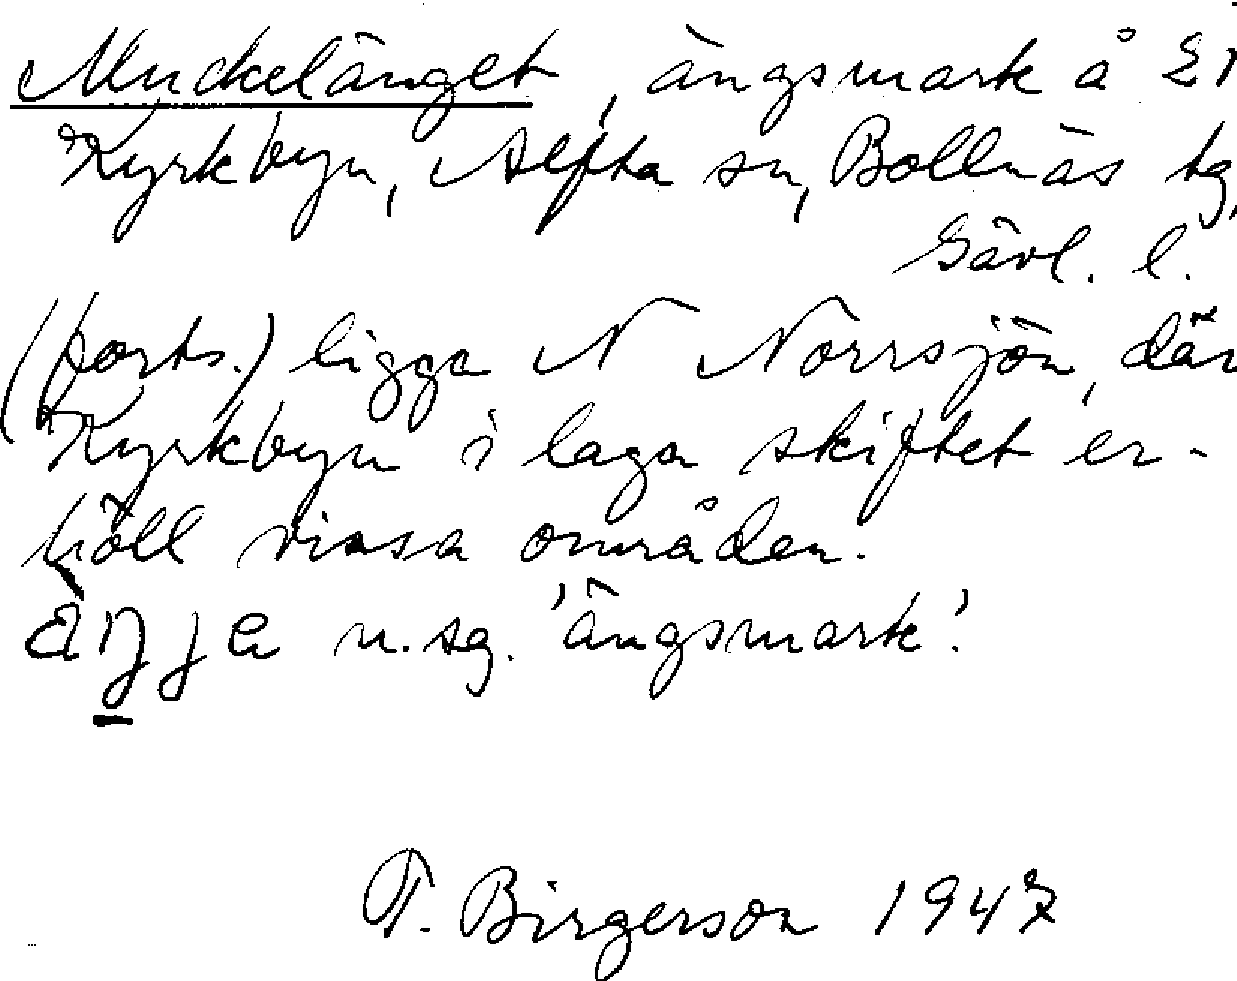 Muckelänget, ängsmark å 21
Kyrkbyn, Alfta sn, Bollnäs tg,
Gävl. l.
(forts.) ligga N Norrsjön, där
Kyrkbyn i laga skiftet er-
höll vissa områden.
äŋja n.sg. 'ängsmark'.
T. Birgerson 1947